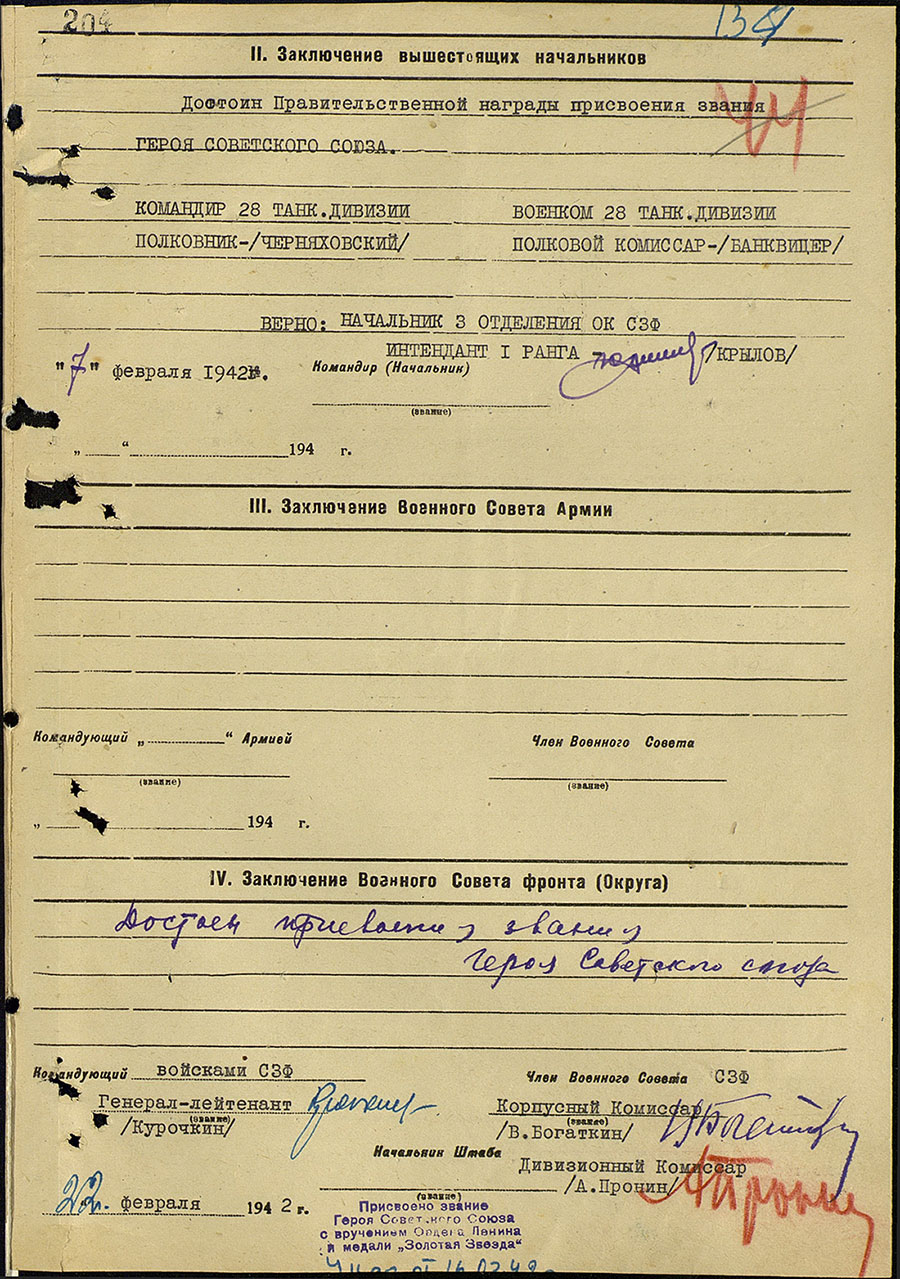 204
134
II. Заключение вышестоящих начальников
Достоин Правительственной награды присвоения звания
ГЕРОЯ СОВЕТСКОГО СОЮЗА.
КОМАНДИР 28 ТАНК.ДИВИЗИИ ВОЕНКОМ 28 ТАНК.ДИВИЗИИ
ПОЛКОВНИК-/ЧЕРНЯХОВСКИЙ/ ПОЛКОВОЙ КОМИССАР-/БАНКВИЦЕР/
ВЕРНО: НАЧАЛЬНИК 3 ОТДЕЛЕНИЯ ОК СЗФ
ИНТЕНДАНТ I РАНГА /КРЫЛОВ/
"7" февраля 1942г. Командир (Начальник)
(звание)
„ “ 194 г.
III. Заключение Военного Совета Армии
Командующий „ “ Армией Член Военного Совета
(звание) (звание)
„ 194 г.
IV. Заключение Военного Совета фронта (Округа)
Достоен присвоения звания
Героя Советского союза
Командующий войсками СЗФ Член Военного Совета СЗФ
Генерал-лейтенант Корпусный Комиссар
(звание) (звание)
/Курочкин/ /В.Богаткин/
Начальник Штаба
Дивизионный Комиссар
/А.Пронин/ АПронин
22. февраля 1942 г. (звание)
Присвоено звание
Героя Советского Союза
с вручением Ордена Ленина
и медали „Золотая Звезда“